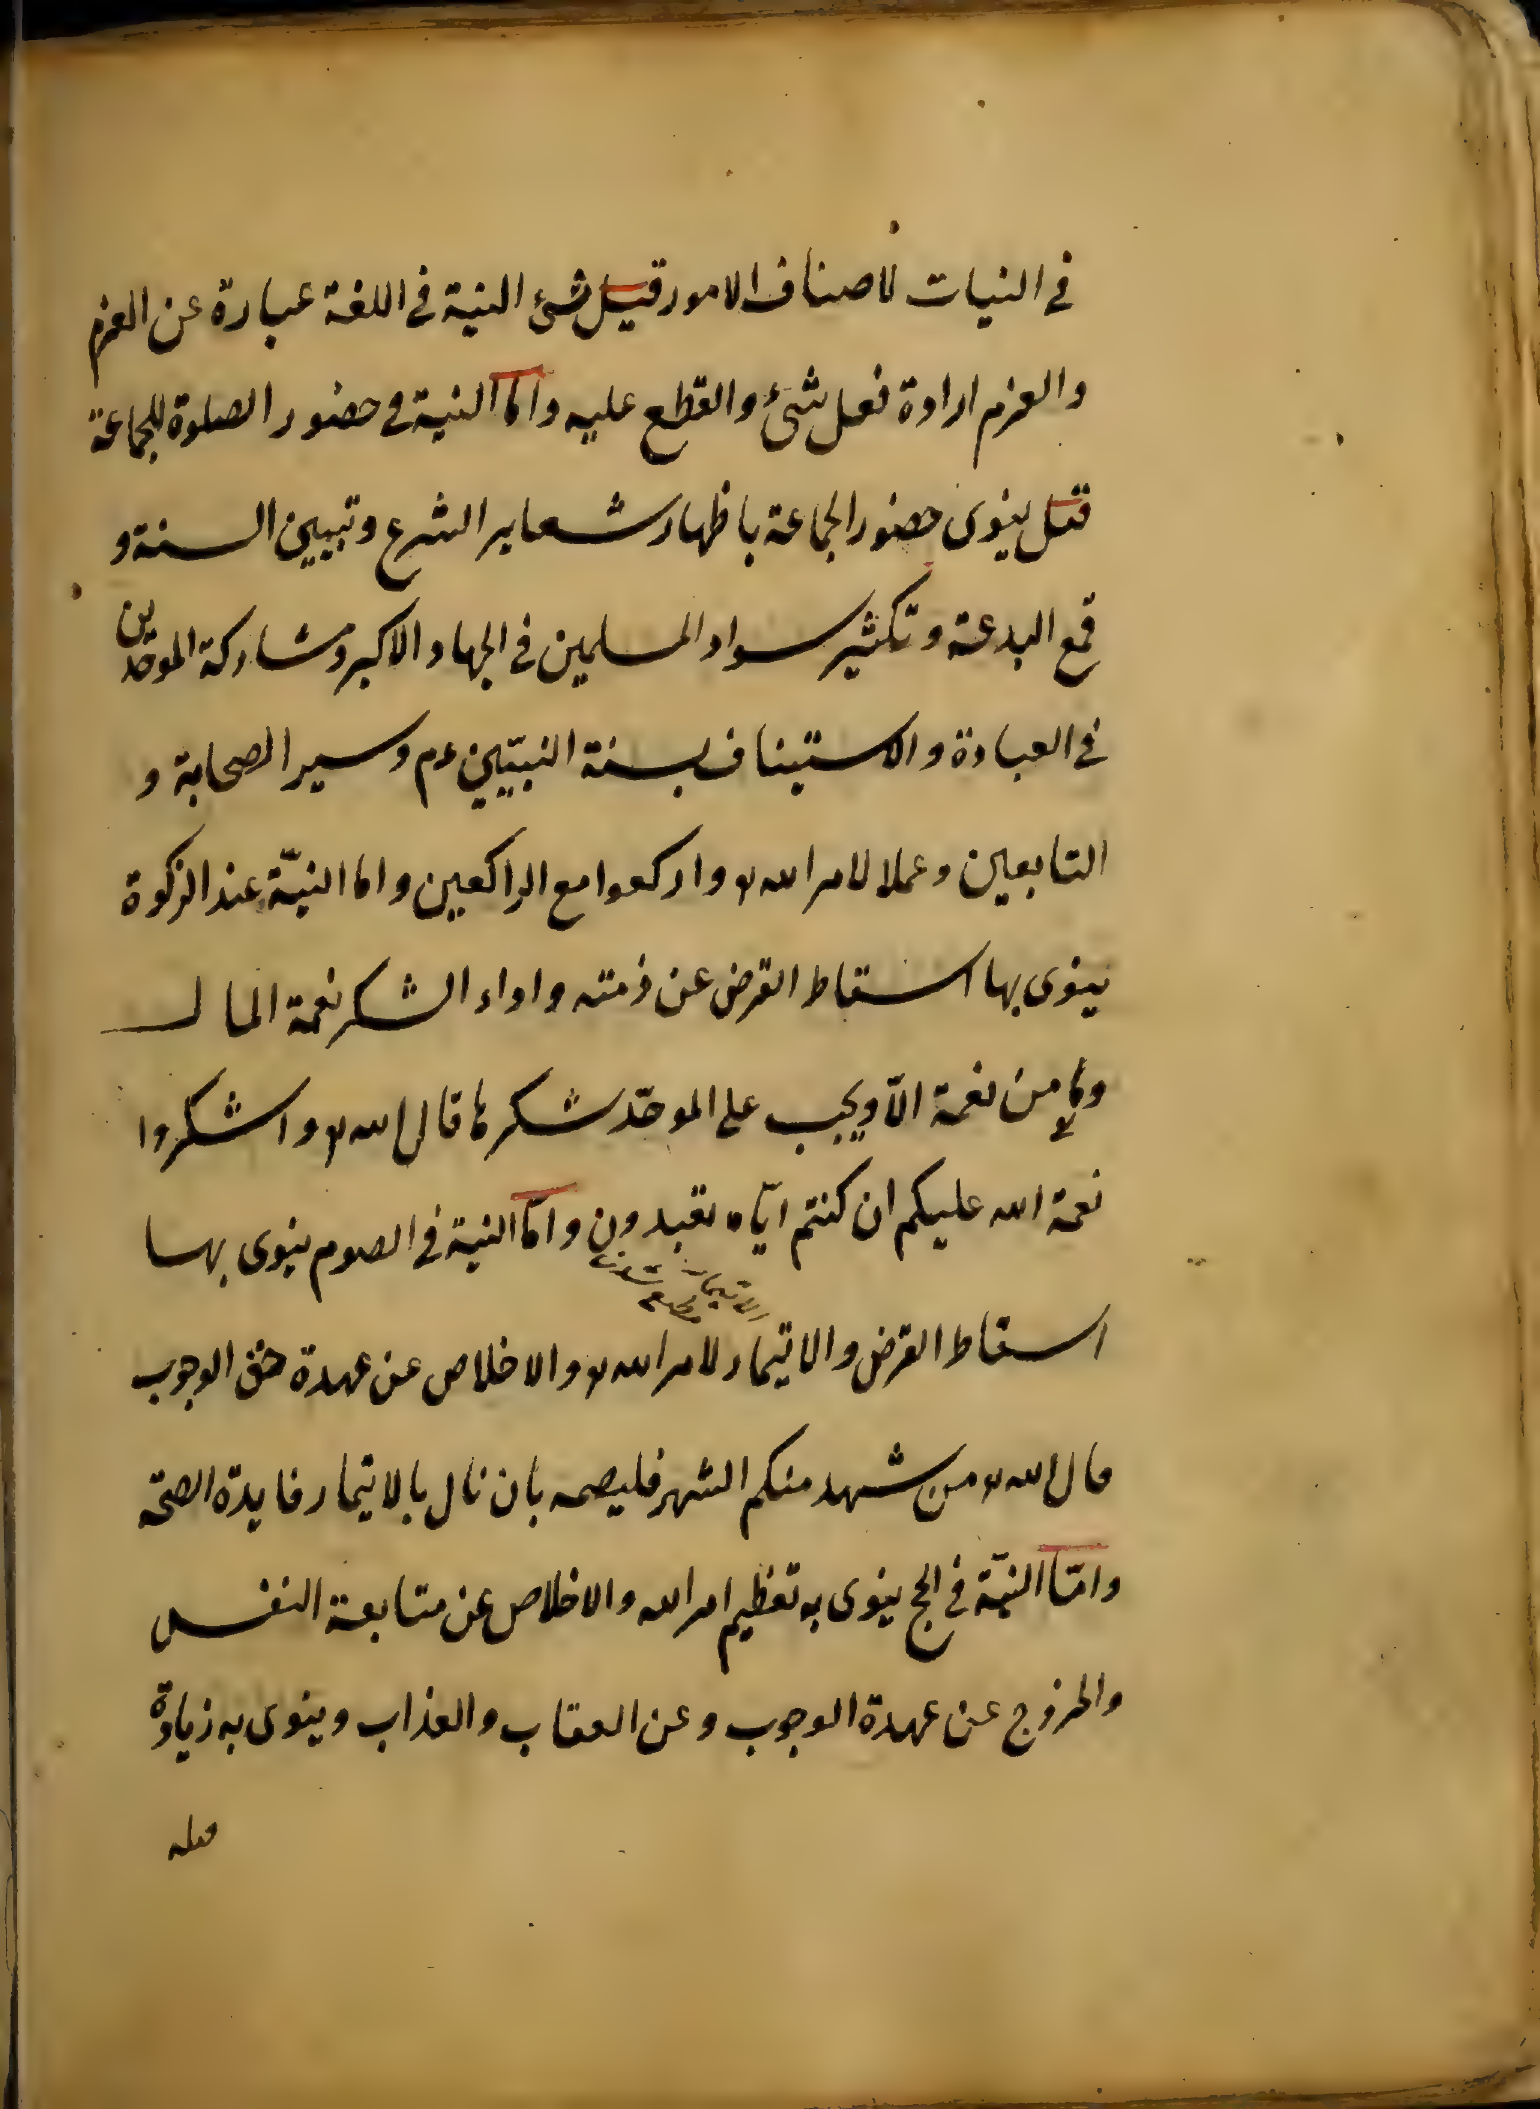 في النيات لاصناف الامور قيل شئ النية في اللغة عبارة عن العزم
والعزم ارادة فعل شئ والقطع عليه واما النية في حضور الصلوة للجماعة
قيل ينوى حضور الجماعة باظهار شعاير الشرع وتبيين السنة و
قمع البدعة وتكثير سواد المسلمين في الجهاد الاكبر ومشاركة الموحدين
في العبادة والاستيناف بسنة النبيّين عم وسير الصحابة و
التابعين وعملا لامر الله واركعوا مع الراكعين واما النيّة عند الزكوة
ينوى بها اسقاط القرض عن ذمته واداء الشكر نعمة المال
من نعمة الاّ ويجب على الموحّد شكرها قال الله واشكروا
نعمة الله عليكم ان كنتم ايّاه تعبدون وامّا النية في الصوم ينوى بها
الاتيمار
اسقاط القرض والاتيمار لامر الله والاخلاص عن عهدة حق الوجوب
قال الله من شهد منكم الشهر فليصمه بان نال بالاتيمار فايدة الصحّة
وامّا النيّة في الحج ينوى به تعظيم امر الله والاخلاص عن متابعة النفس
والخروج عن عهدة الوجوب وعن العقاب والعذاب وينوى به زيادة